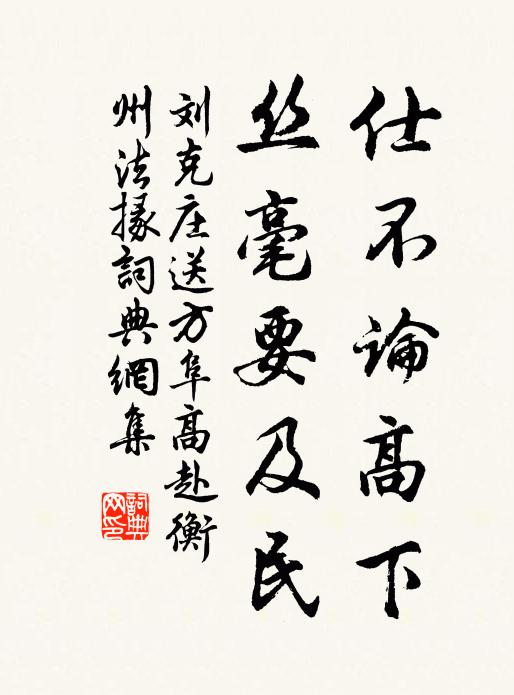 仕不論高下
丝毫要及民
刘克庄送方阜高赴衡
州法掾詞典網集
詞典
网印